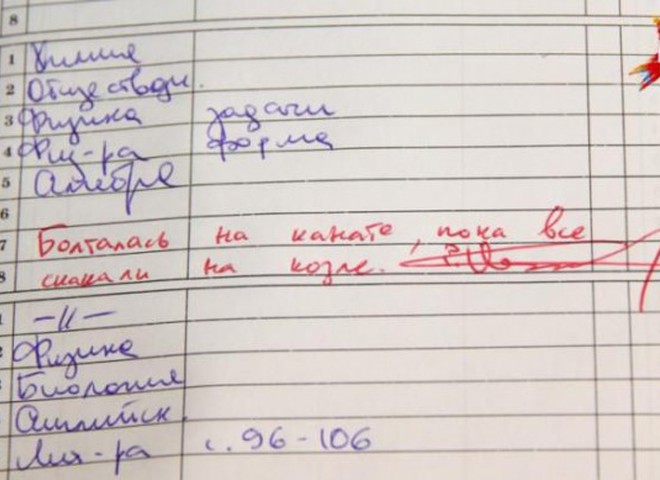 8
1 Химия
2 Обществозн.
3 Физика задачи
4 Физ-ра форма
5 Алгебра
6
7 Болталась на канате, пока все
8 скакали на козле.
1 -||-
2 Физика
3 Биология
Английск.
Лит-ра с. 96-106